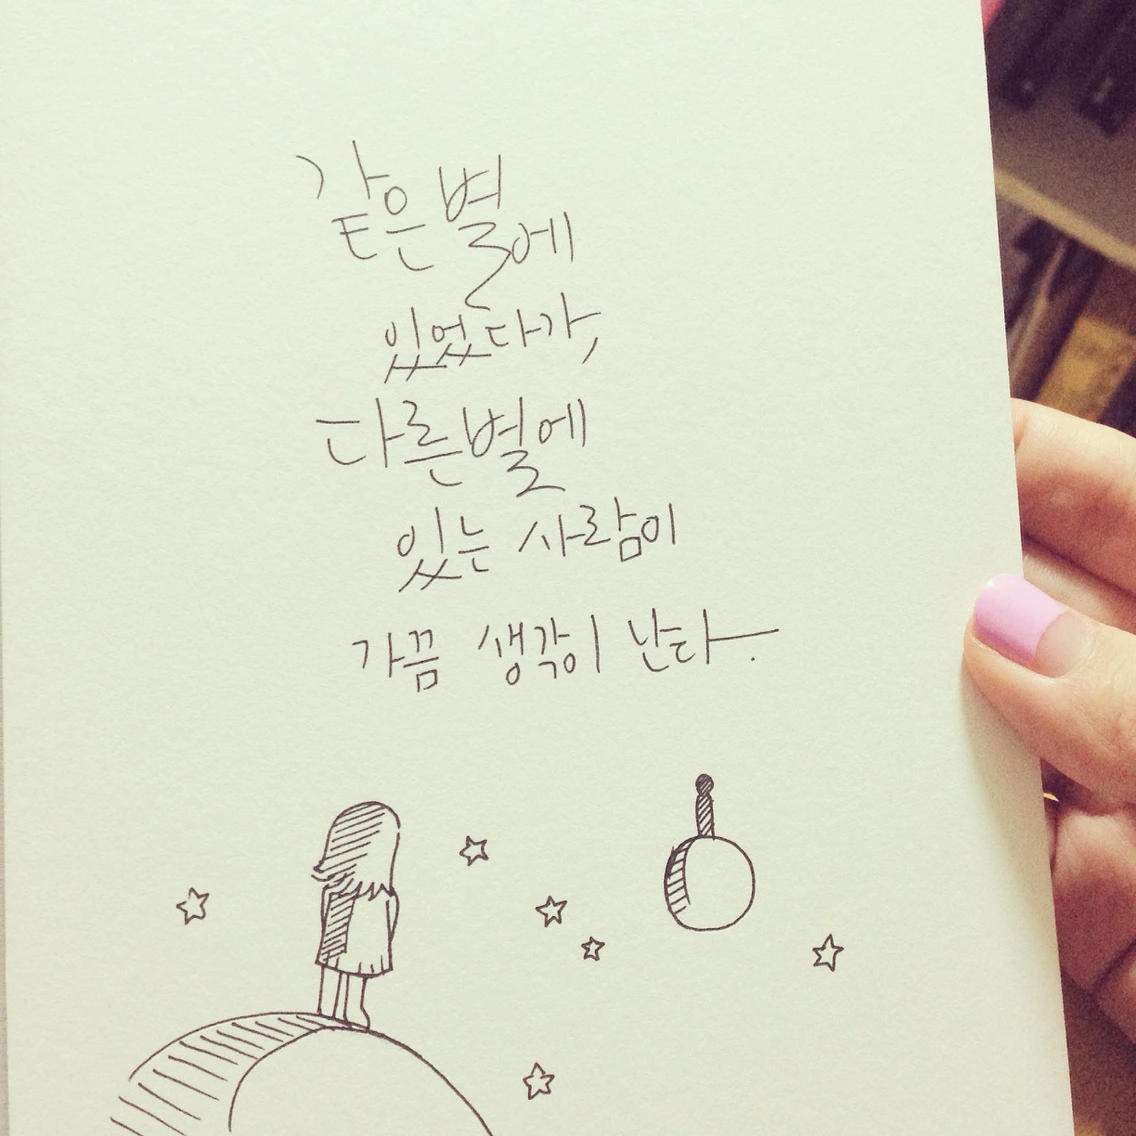 같은 별에
있었다가,
다른 별에
있는 사람이
가끔 생각이 난다.